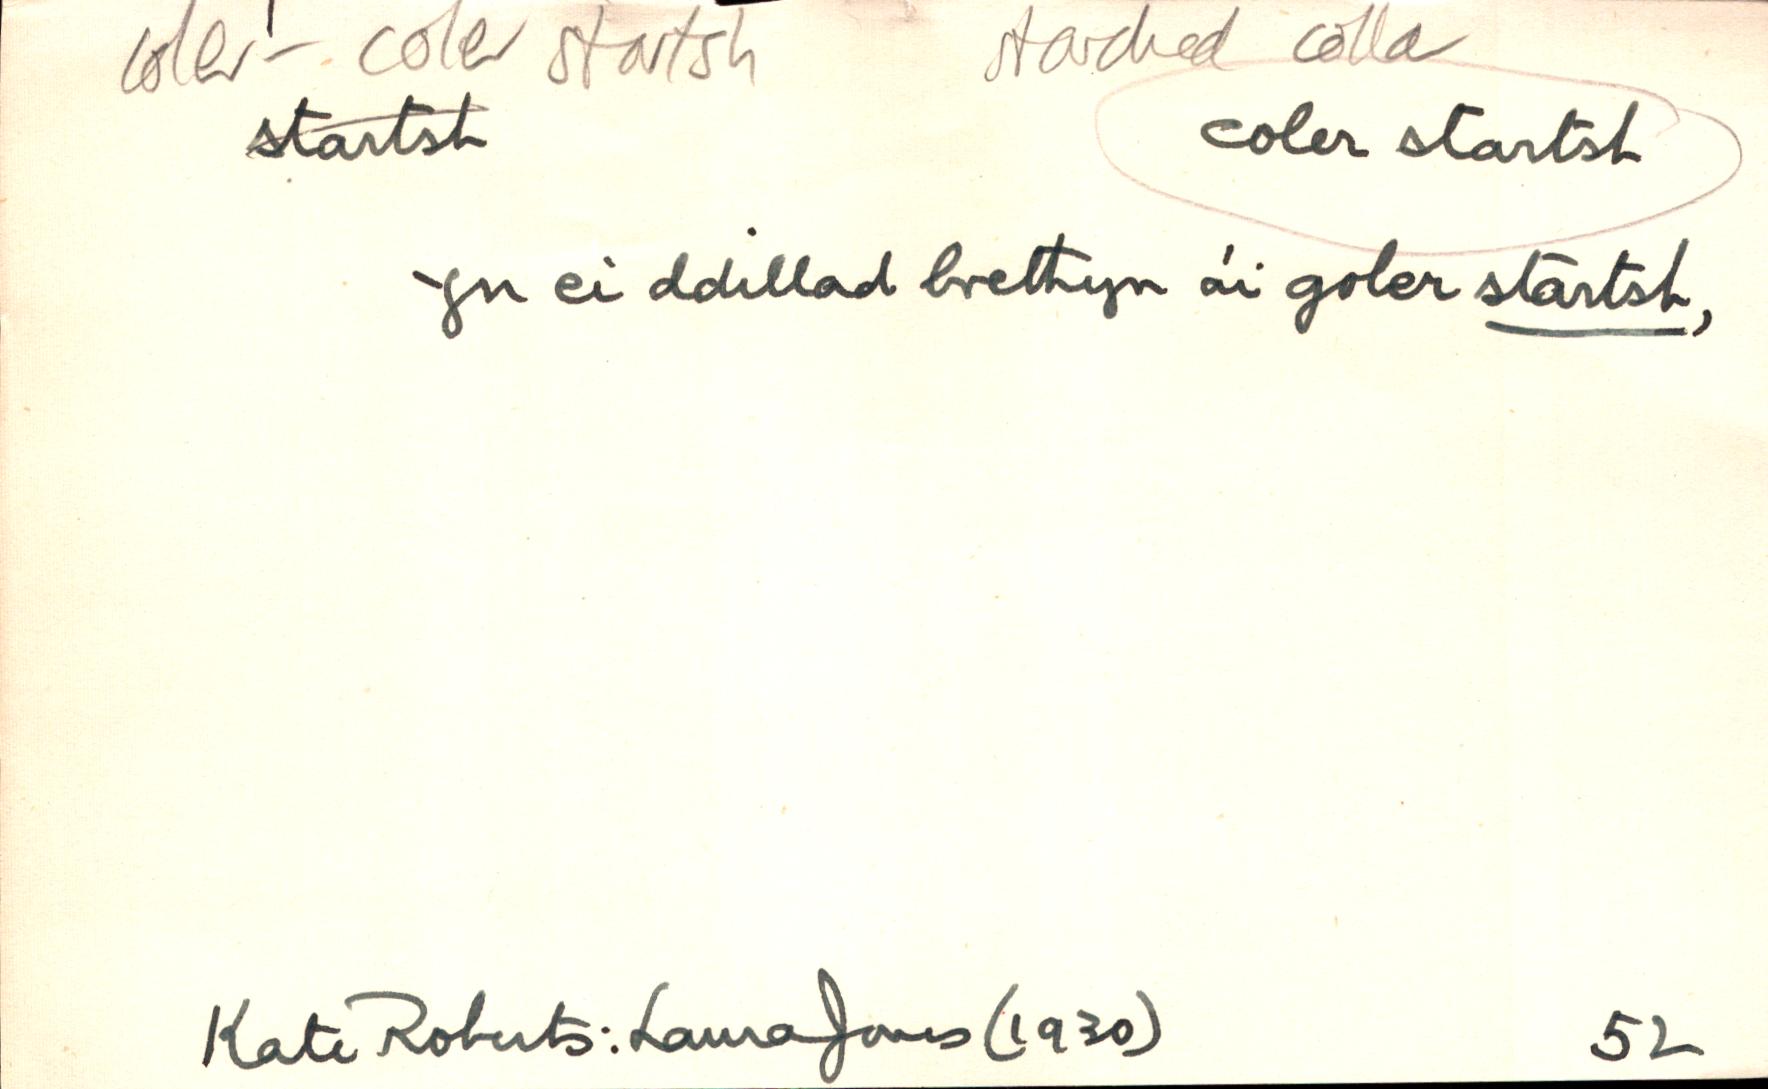 coler¹ – coler startsh starched collar
startsh coler startsh
Yn ei ddillad brethyn a'i goler startsh,
Kate Roberts: Laura Jones (1930) 52